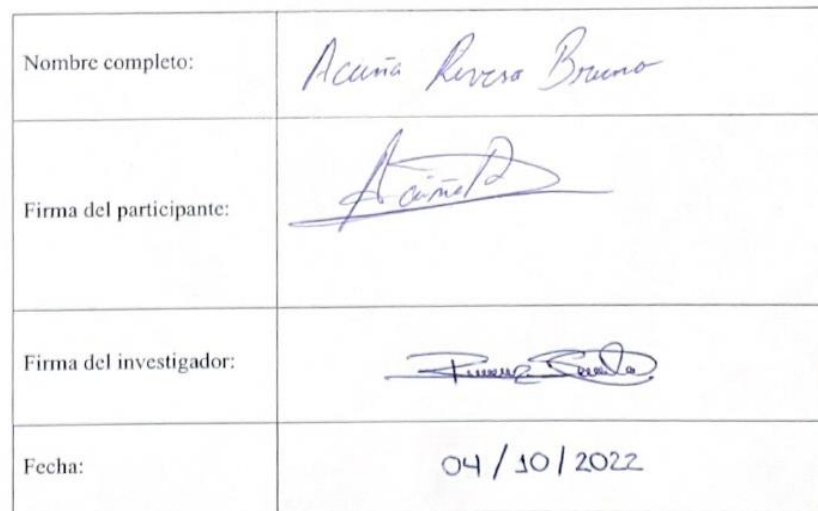 Nombre completo:
Acuña Rivera Bruno
Firma del participante:
Acuña R
Firma del investigador:
Fecha:
04/10/2022